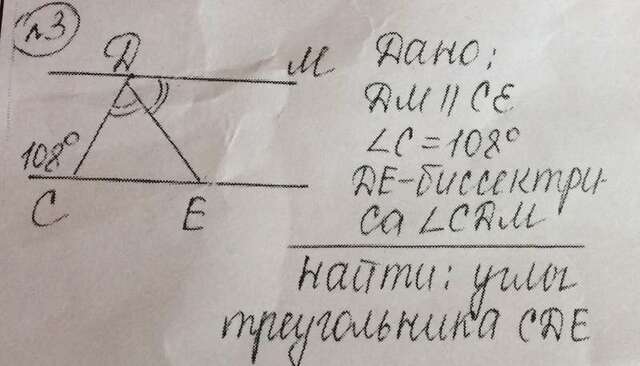 №3
D
M
108°
C
E
Дано:
DM || CE
∠C = 108°
DE-биссектри-
са ∠CDM
Найти: углы
треугольника CDE